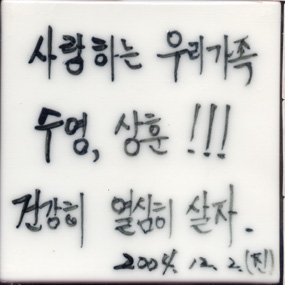 사랑하는 우리가족
수영, 상훈 !!!
건강히 열심히 살자.
2004. 12. 2. (진)